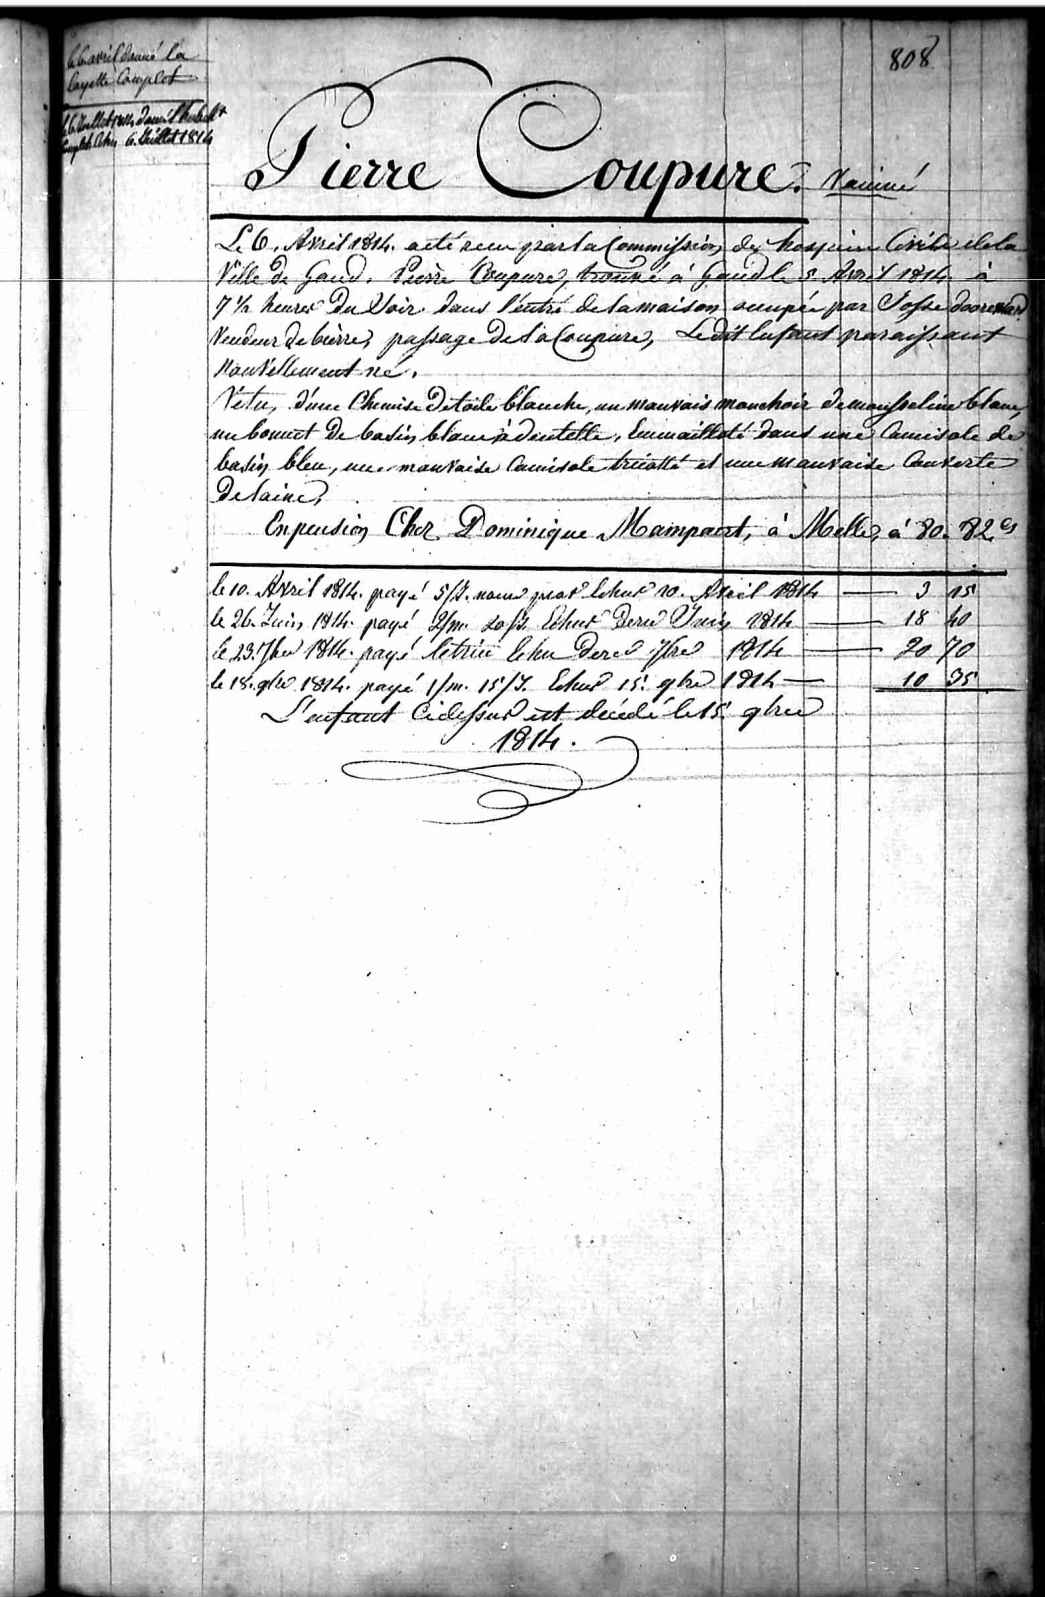 808
le 6 avril donné la
layette Complet
le 6 Juillet 1814 donné
Complet 6. Juillet 1814
Pierre Coupure. Vacciné
Le 6. Avril 1814. a été recu par la Commission des hospices Civils de la
Ville de Gand. Pierre Coupure, trouvé à Gand le 5 Avril 1814 à
7 1/2 heures du Soir dans l'entré de la maison occupée par Josse
Vendeur de bierre, passage de la Coupure, Le dit Enfant paraissant
nouvellement né.
Vetu, d'une Chemise de toile blanche, un mauvais mouchoir de mousseline blanc,
un bonnet de basin blanc à dentelle, Emmailloté dans une Camisole de
basin bleu, une mauvaise Camisole tricotté et une mauvaise Couverte
de laine,
En pension Chez Dominique Mampaert, à Melle, à 80. 82 cs
le 10. Avril 1814. payé 5/J. Echus 10. Avril 1814 — 3 15
le 26. Juin 1814. payé 2/m. 20/J. Echus Dernr Juin 1814 — 18 40
le 23. 7bre 1814. payé le trim Echu 7bre 1814 — 20 70
le 18. 9bre 1814. payé 1/m. 15/J. Echus 15. 9bre 1814 — 10 35
L'enfant Cidessus est décédé le 15 9bre
1814.